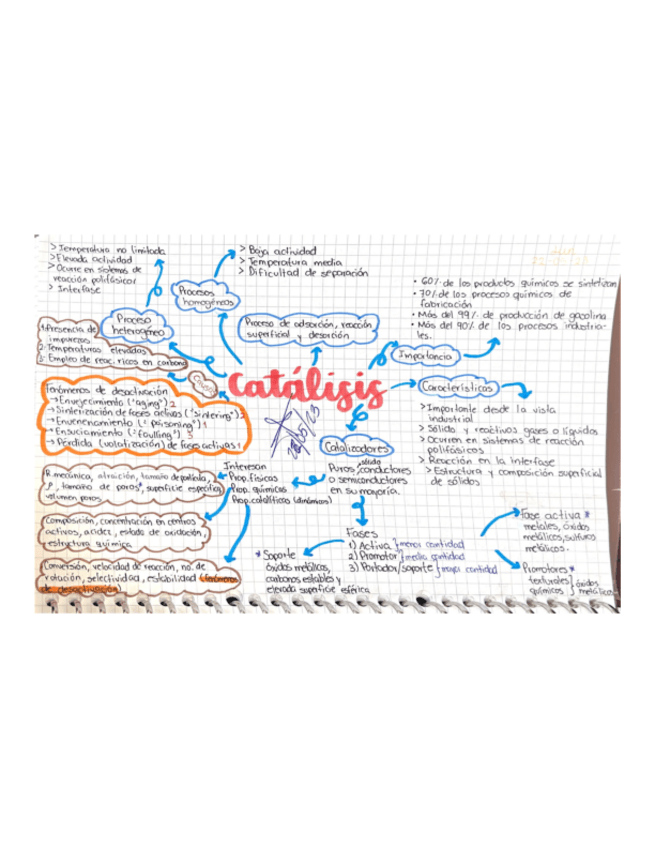 > Temperatura no limitada
> Elevada actividad
> Ocurre en sistemas de
reacción polifásicos
> Interfase
> Baja actividad
> Temperatura media
> Dificultad de separación
Procesos
homogéneos
Proceso
heterogéneo
Proceso de adsorción, reacción
superficial y desorción
• 60% de los productos químicos se sintetizan
• 70% de los procesos químicos de
fabricación
• Más del 99% de producción de gasolina
• Más del 90% de los procesos industria-
les.
Importancia
1. Presencia de
impurezas
2. Temperaturas elevadas
3. Empleo de reac. ricos en carbono
Causas
Catálisis
26/05/23
Características
> Importante desde la vista
industrial
> Sólido y reactivos gases o líquidos
> Ocurren en sistemas de reacción
polifásicos
> Reacción en la interfase
> Estructura y composición superficial
de sólidos
Fenómeros de desactivación
→ Envejecimiento ("aging") 2
→ Sinterización de fases activas ("sintering") 2
→ Envenenamiento ("poisoning") 1
→ Ensuciamiento ("foulling") 3
→ Pérdida (volatización) de fases activas 1
Catalizadores
sólido
Puros, conductores
o semiconductores
en su mayoría.
Interesan
Prop. físicas
Prop. químicas
Prop. catalíticas (dinámicas)
R. mecánica, atracción, tamaño de partícula,
ρ, tamaño de poros, superficie específica,
volumen poros
Composición, concentración en centros
activos, acidez, estado de oxidación,
estructura química
Conversión, velocidad de reacción, no. de
rotación, selectividad, estabilidad (fenómenos
de desactivación)
Fases
1) Activa } menor cantidad
2) Promotor } media cantidad
3) Portador/soporte } mayor cantidad
* Soporte
óxidos metálicos,
carbones estables y
elevada superficie esférica
Fase activa *
metales, óxidos
metálicos, sulfuros
metálicos.
Promotores *
texturales } óxidos
químicos } metálicos